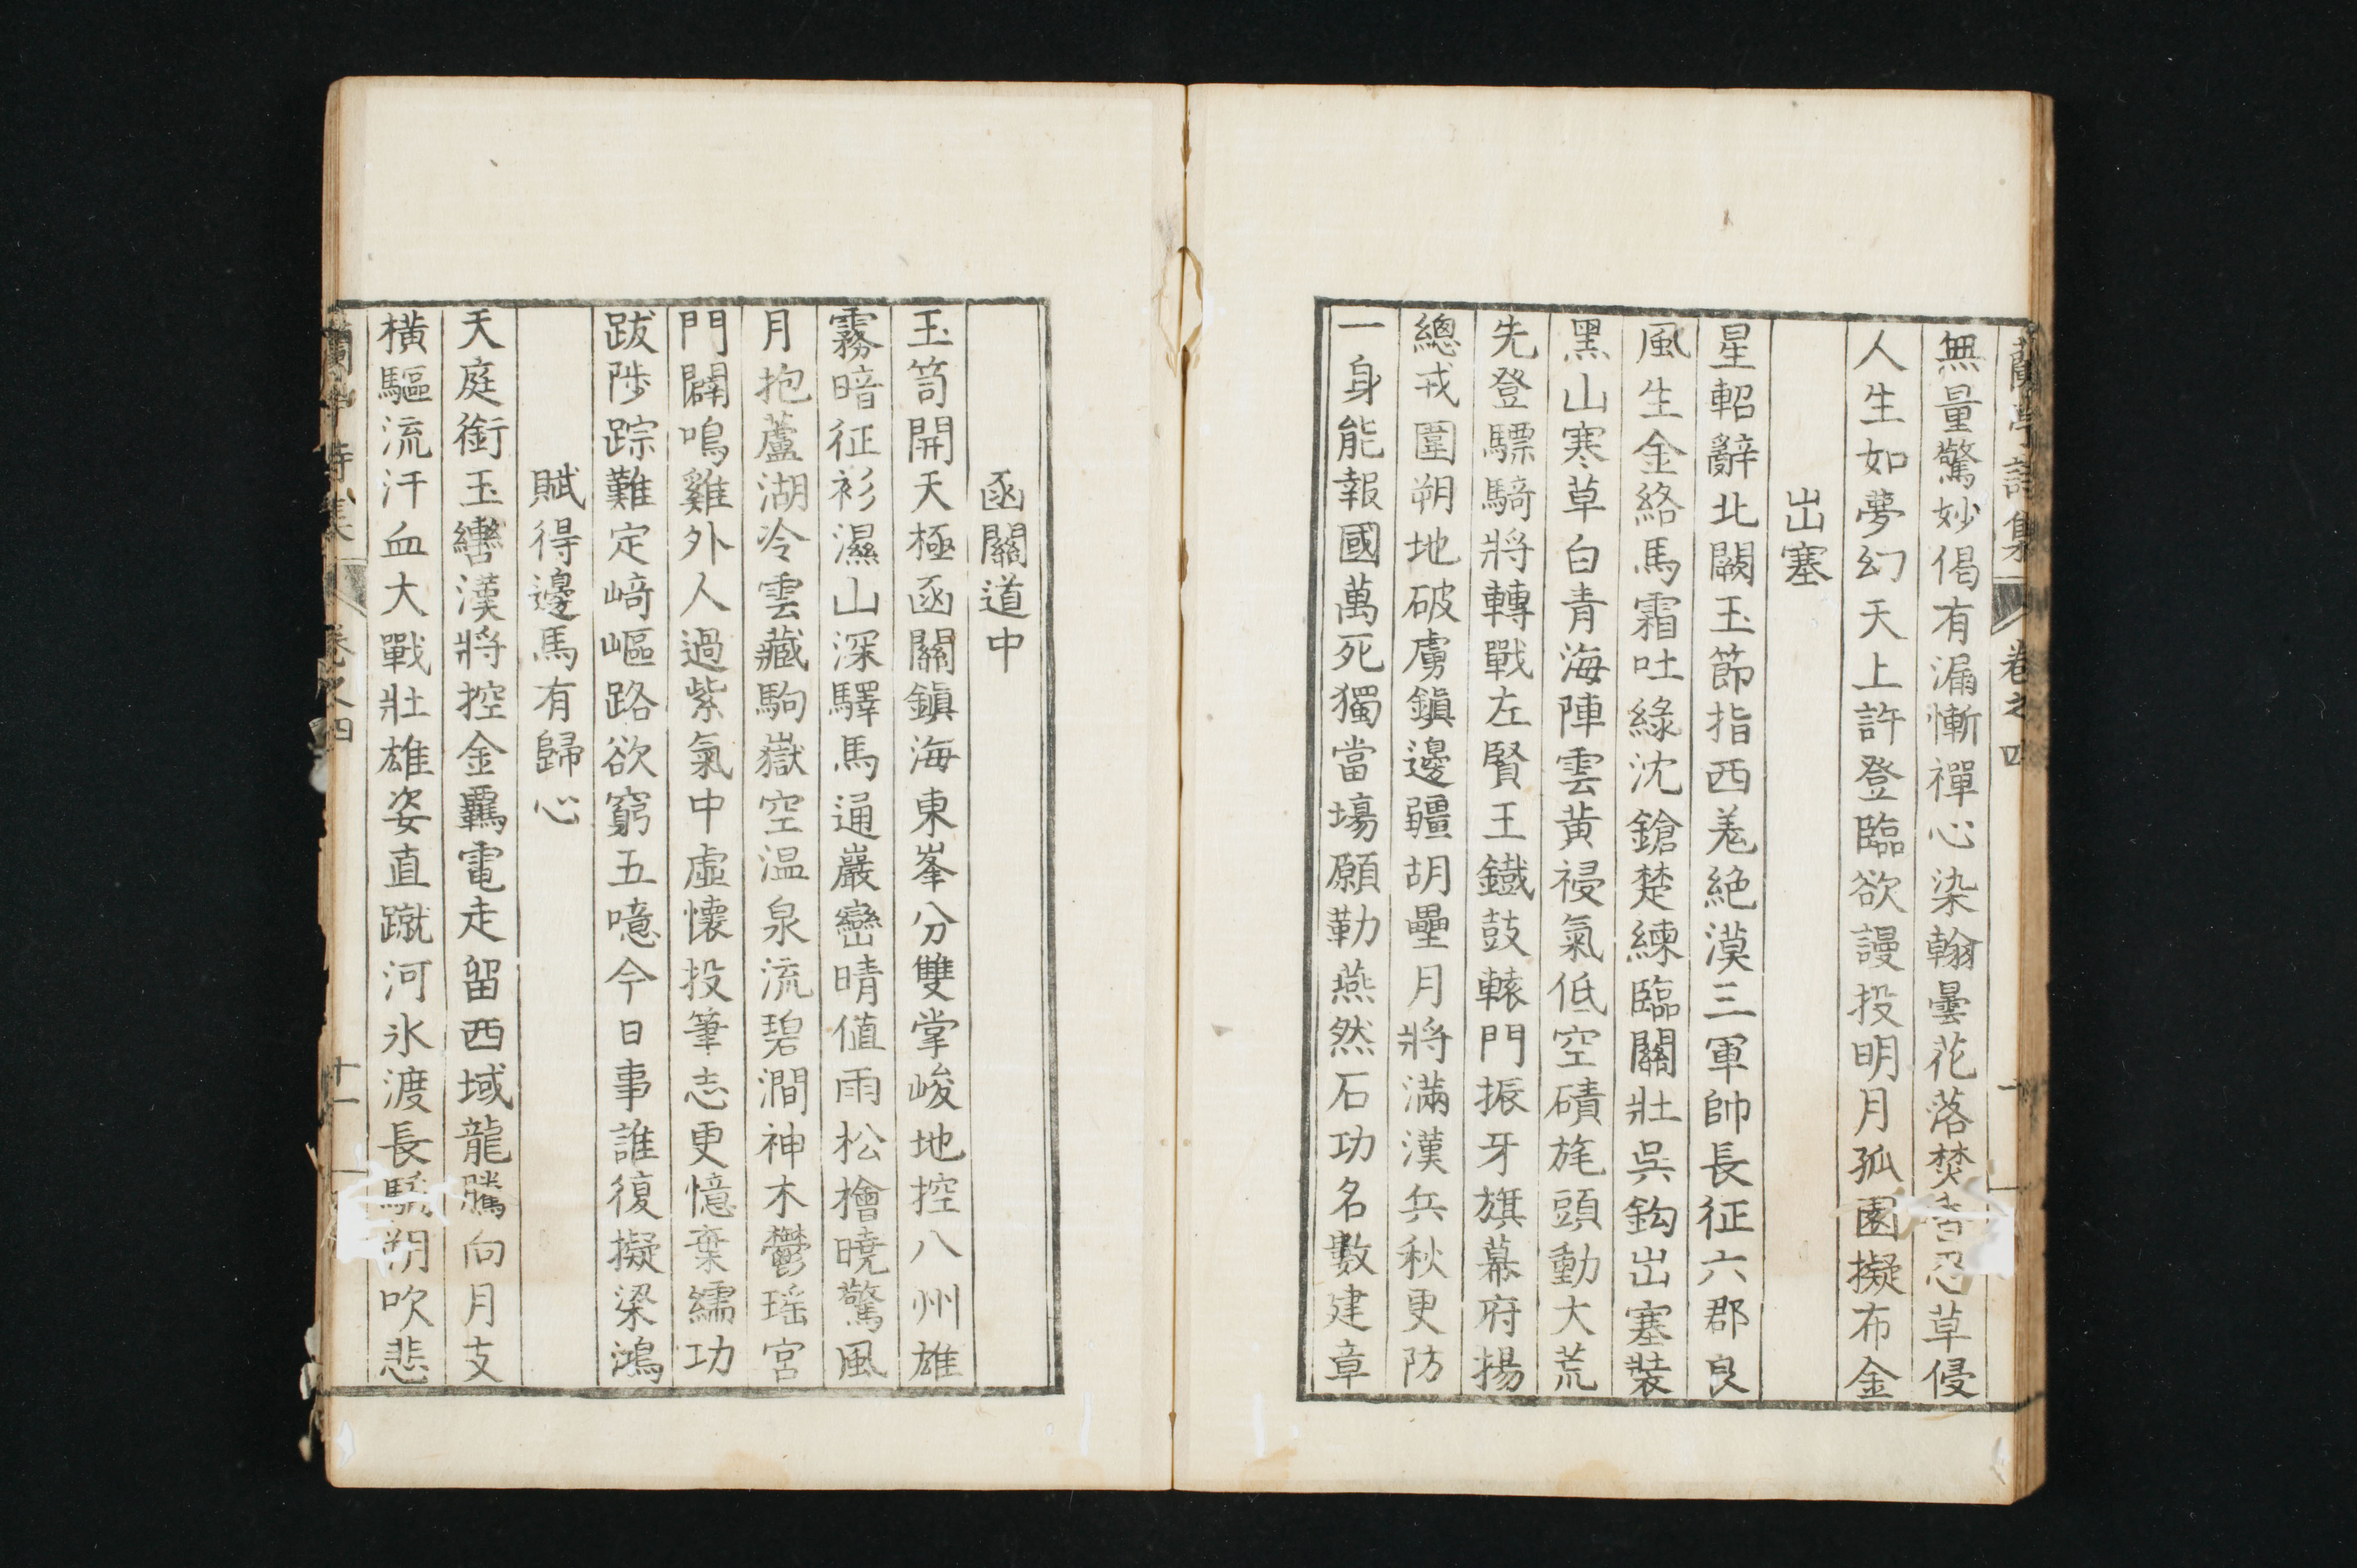 蘭亭詩集 卷之四 十
無量驚妙偈有漏慚禪心染翰曇花落焚香忍草侵
人生如夢幻天上許登臨欲謾投明月孤園擬布金
出塞
星軺辭北闕玉節指西羌絶漠三軍帥長征六郡良
風生金絡馬霜吐綠沈鎗楚練臨關壯吳鈎出塞裝
黑山寒草白青海陣雲黄祲氣低空磧旄頭動大荒
先登驃騎將轉戰左賢王鐵鼓轅門振牙旗幕府揚
總戎圍朔地破虜鎭邊疆胡壘月將滿漢兵秋更防
一身能報國萬死獨當場願勒燕然石功名數建章
函關道中
玉笥開天極函關鎭海東峯分雙掌峻地控八州雄
霧暗征衫濕山深驛馬通巖巒晴値雨松檜曉驚風
月抱蘆湖冷雲藏駒嶽空温泉流碧澗神木鬱瑶宮
門闢鳴雞外人過紫氣中虛懷投筆志更憶棄繻功
跋陟踪難定﨑嶇路欲窮五噫今日事誰復擬梁鴻
賦得邊馬有歸心
天庭銜玉轡漢將控金羈電走留西域龍騰向月支
横驅流汗血大戰壯雄姿直蹴河氷渡長驕朔吹悲
蘭亭詩集 卷之四 十一